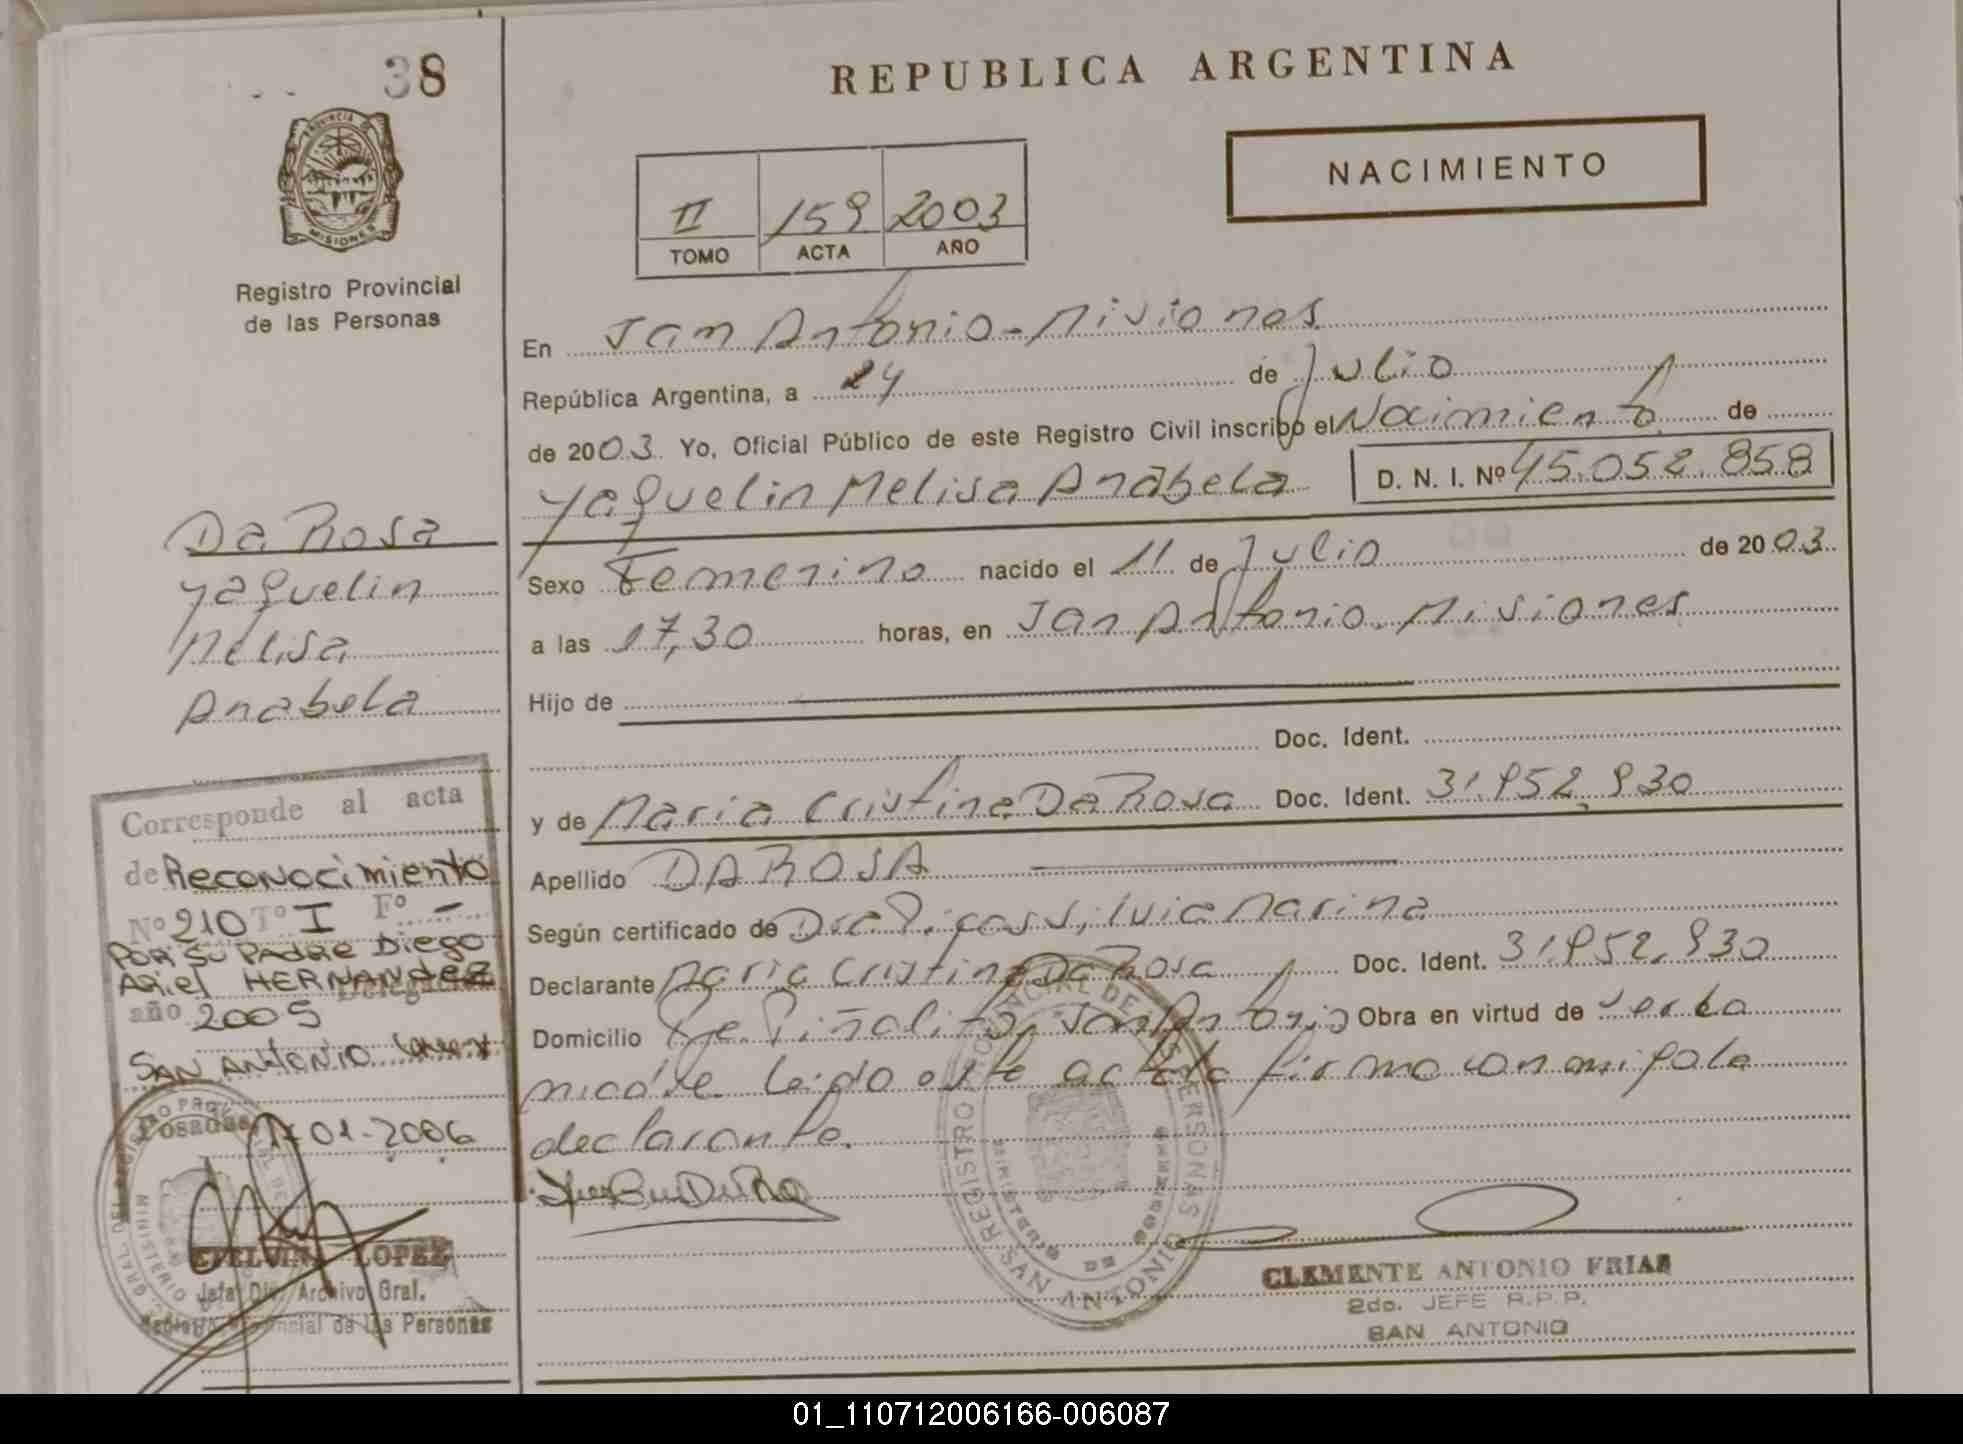 38
REPUBLICA ARGENTINA
PROVINCIA DE
MISIONES
Registro Provincial
de las Personas
NACIMIENTO
II 159 2003
TOMO ACTA AÑO
En San Antonio - Misiones
República Argentina, a 24 de Julio
de 2003. Yo, Oficial Público de este Registro Civil inscribo el Nacimiento de
Yaquelin Melisa Anabela D. N. I. Nº 45.052.858
Sexo Femenino nacido el 11 de Julio de 2003
a las 17,30 horas, en San Antonio. Misiones
Hijo de
Doc. Ident.
y de Maria Cristina Da Rosa Doc. Ident. 31.952.930
Apellido DA ROSA
Según certificado de Dra Silvia Marina
Declarante Maria Cristina Da Rosa Doc. Ident. 31.952.930
Domicilio Pje. Piñalito, San Antonio Obra en virtud de
leido este acta la firma conmigo la
declarante.
Da Rosa
Yaquelin
Melisa
Anabela
Corresponde al acta
de Reconocimiento
Nº 210 Tº I Fº -
POR SU PADRE Diego
Ariel HERNANDEZ
año 2005
SAN ANTONIO
Posadas 01-2006
LOPEZ
Jefa Div. Archivo Gral.
Registro Provincial de las Personas
REGISTRO PROVINCIAL DE LAS PERSONAS
MINISTERIO DE GOBIERNO
SAN ANTONIO
CLEMENTE ANTONIO FRIAS
2do. JEFE R.P.P.
SAN ANTONIO
01_110712006166-006087